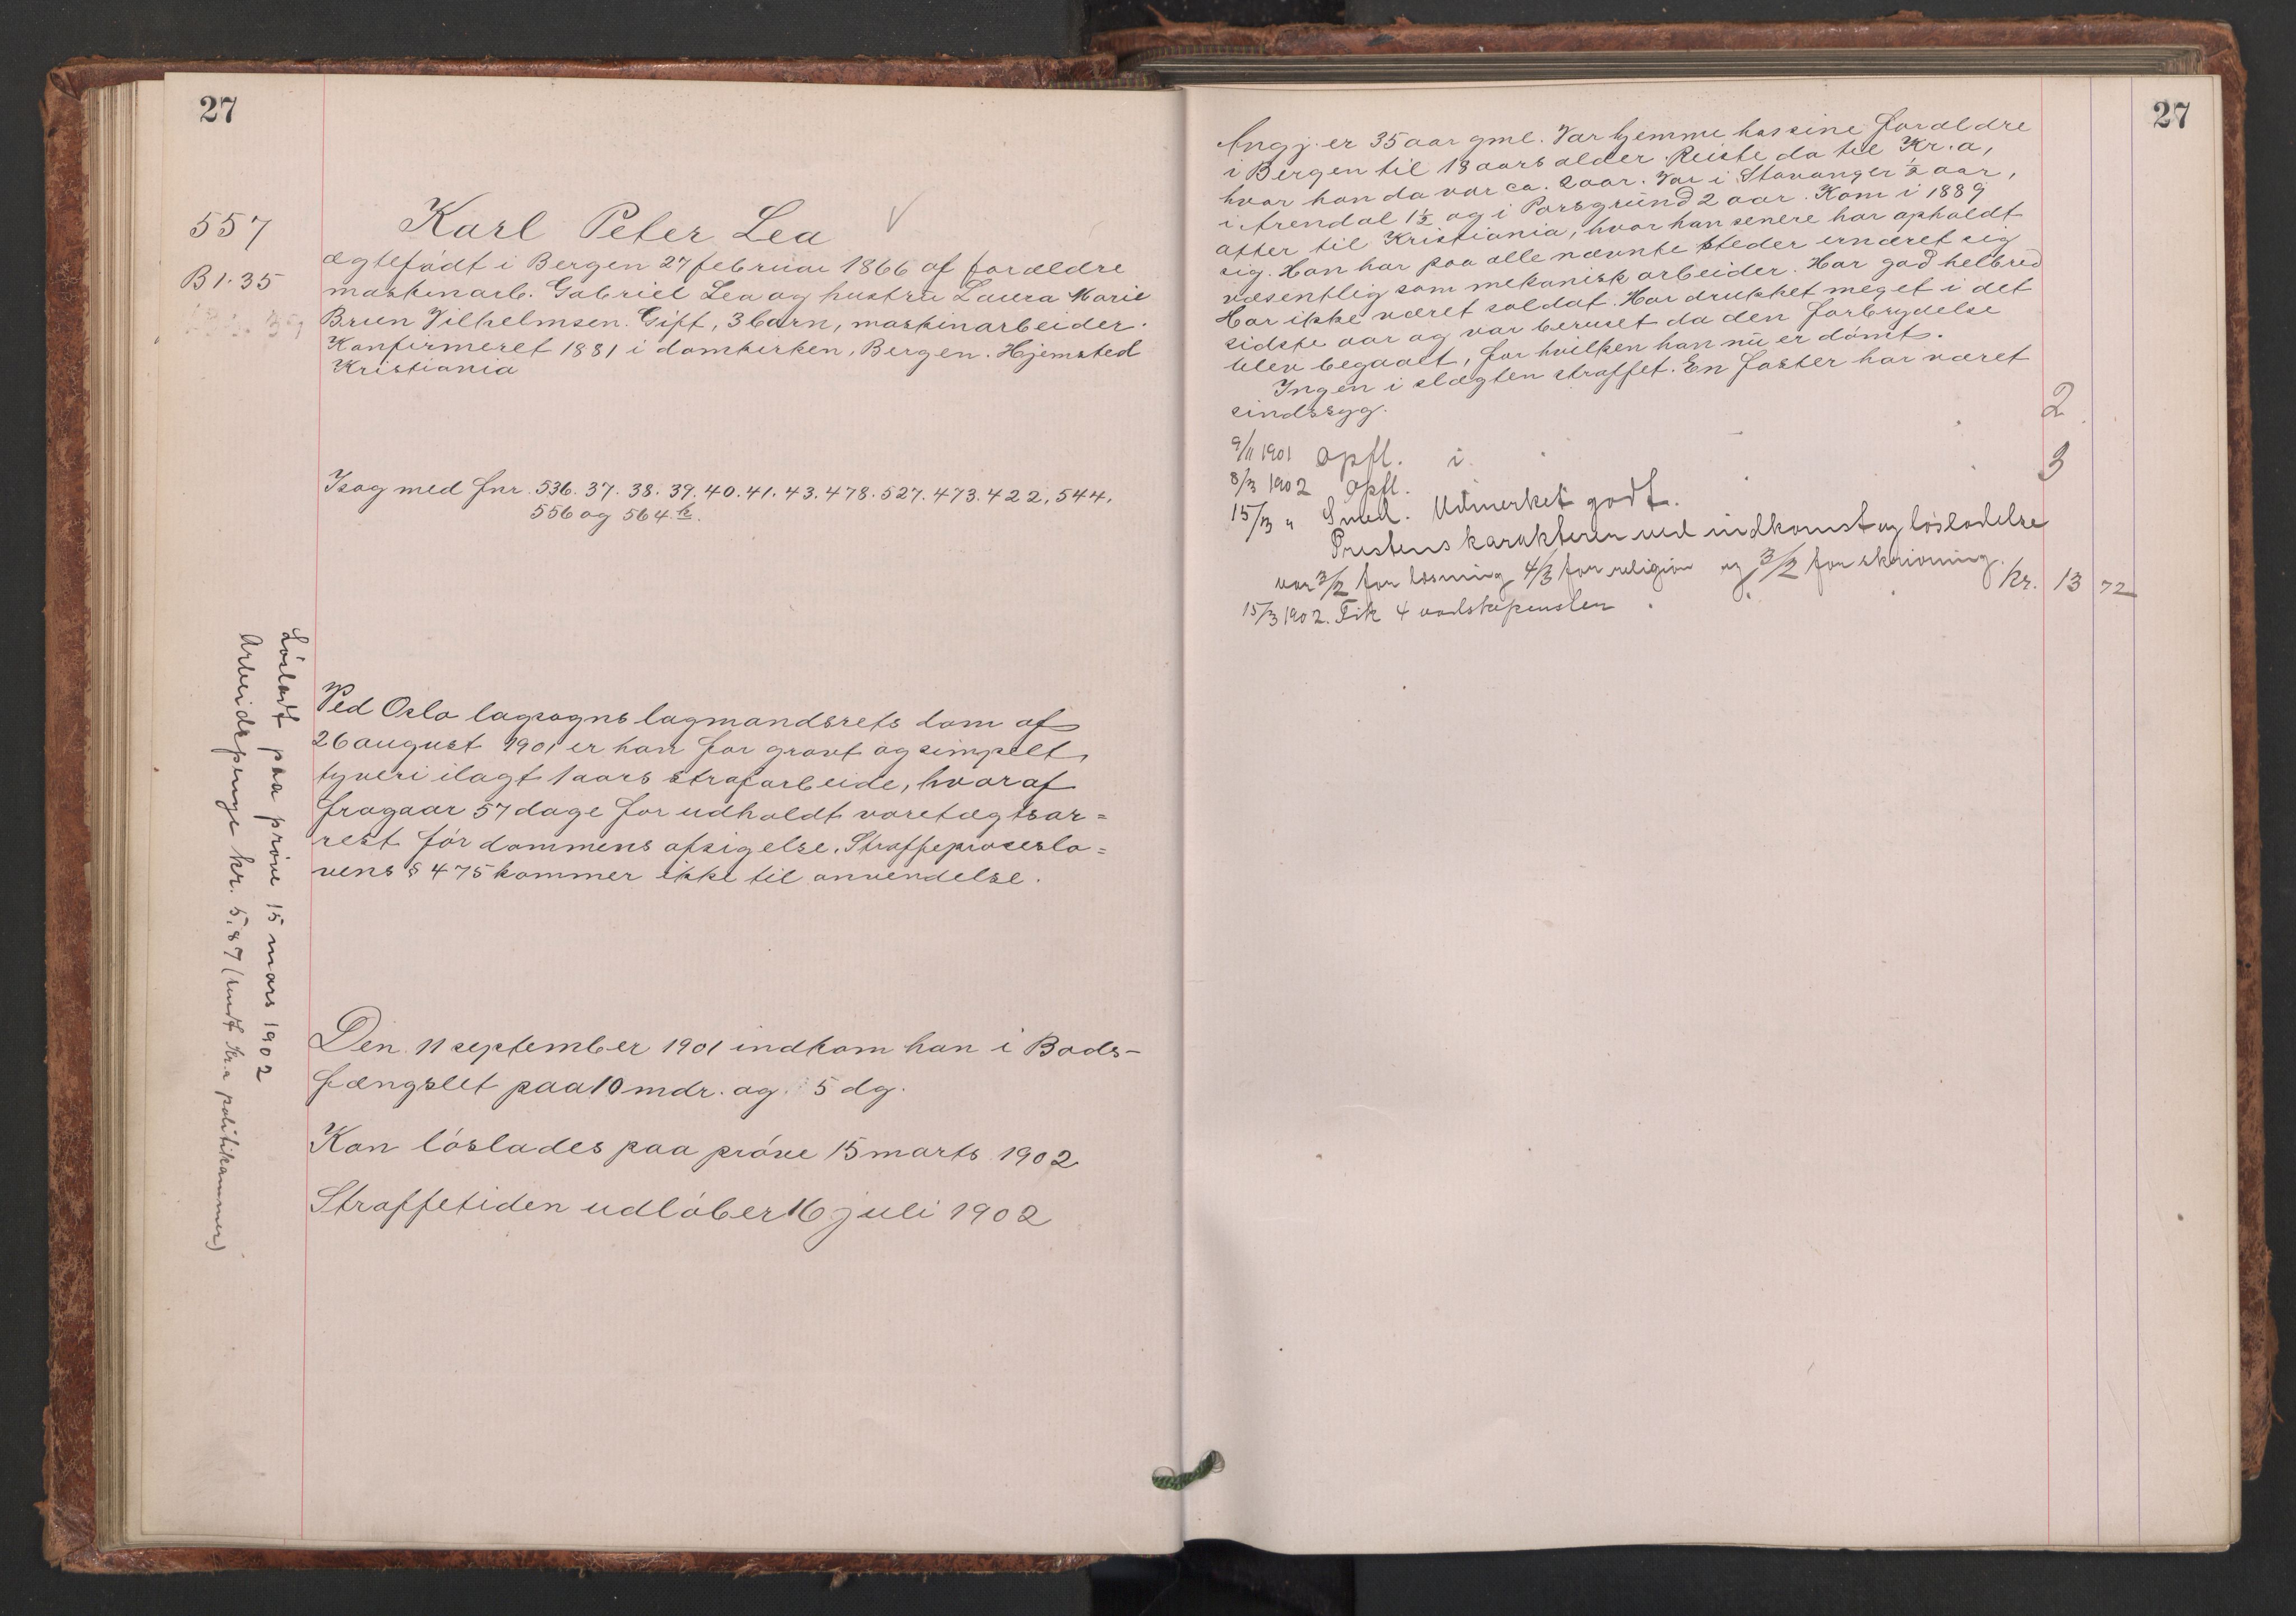 27
557
B 1.35
Karl Peter Lea
ægtefødt i Bergen 27 februar 1866 af forældre
maskinarb. Gabriel Lea og hustru Laura Marie
Brun Vilhelmsen. Gift, 3 børn, maskinarbeider.
Konfirmeret 1881 i domkirken, Bergen. Hjemsted
Kristiania
I sag med fnr. 536. 37. 38. 39. 40. 41. 43. 478. 527. 473. 422. 544.
556 og 564 k.
Ved Oslo lagsogns lagmandsrets dom af
26 august 1901 er han for grovt og simpelt
tyveri ilagt 1 aars strafarbeide, hvoraf
fragaar 57 dage for udholdt varetægtsar=
rest før dommens afsigelse. Straffeproceslo=
vens § 475 kommer ikke til anvendelse.
Den 11 september 1901 indkom han i Bods-
fængslet paa 10 mdr. og 5 dg.
Kan løslades paa prøve 15 marts 1902
Straffetiden udløber 16 juli 1902
Løsladt paa prøve 15 mars 1902
Arbeidspenge kr. 5,87 (sendt Kr.a politikammer)
27
Angj. er 35 aar gml. Var hjemme hos sine forældre
i Bergen til 18 aars alder. Reiste da til Kr.a,
hvor han da var ca. 2 aar. Var i Stavanger ½ aar,
i Arendal 1½ og i Porsgrund 2 aar. Kom i 1889
atter til Kristiania, hvor han senere har opholdt
sig. Han har paa alle nævnte steder ernæret sig
væsentlig som mekanisk arbeider. Har god helbred
Har ikke været soldat. Har drukket meget i det
sidste aar og var beruset da den forbrydelse
blev begaaet, for hvilken han nu er dømt.
Ingen i slægten straffet. En faster har været
sindssyg.
2
9/11 1901 Opfl. i.
3
8/3 1902 Opfl.
15/3 " Smed. Udmerket godt.
Prestens karakterer ved indkomst og løsladelse
var 3/2 for læsning 4/3 for religion og 3/2 for skrivning.
15/3 1902. Fik 4
kr. 13 72